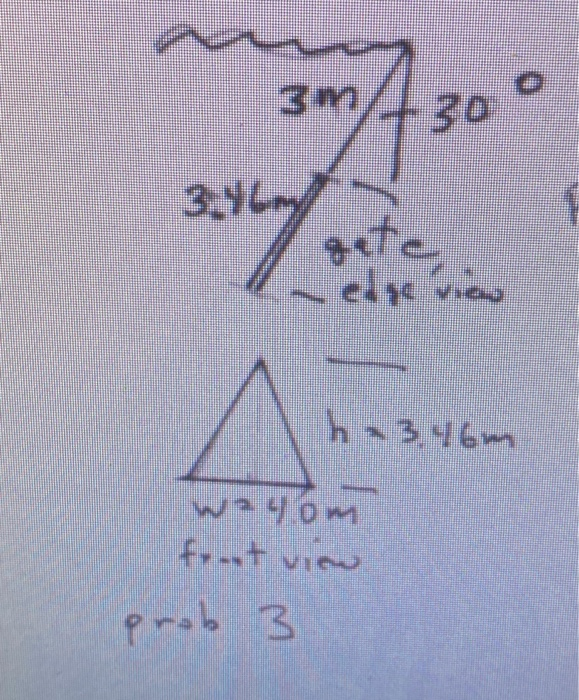 3m
30°
3.46m
gate,
edge view
h = 3.46m
w = 4.0m
front view
prob 3